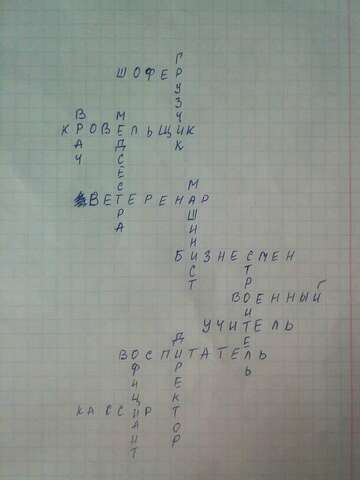 ГРУЗЧИК
ШОФЕР
ВРАЧ
МЕДСЕСТРА
КРОВЕЛЬЩИК
МАШИНИСТ
ВЕТЕРЕНАР
БИЗНЕСМЕН
СТРОИТЕЛЬ
ВОЕННЫЙ
УЧИТЕЛЬ
ДИРЕКТОР
ВОСПИТАТЕЛЬ
ОФИЦИАНТ
КАССИР